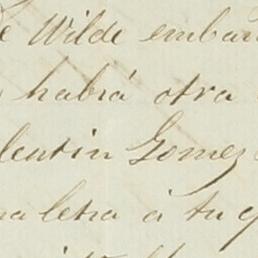 e Wilde emban
habrá otra
lentin Gomez
na letra á tu q